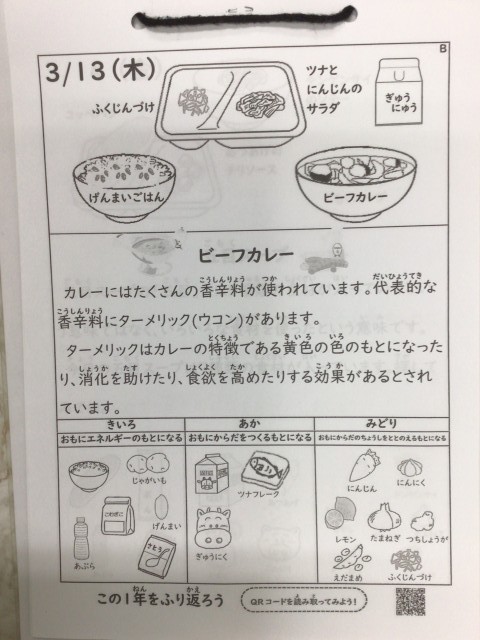 B
3/13(木)
ふくじんづけ
ツナと
にんじんの
サラダ
ぎゅう
にゅう
げんまいごはん
ビーフカレー
ビーフカレー
カレーにはたくさんの香辛料が使われています。代表的な
香辛料にターメリック(ウコン)があります。
ターメリックはカレーの特徴である黄色の色のもとになった
り、消化を助けたり、食欲を高めたりする効果があるとされ
ています。
きいろ あか みどり
おもにエネルギーのもとになる おもにからだをつくるもとになる おもにからだのちょうしをととのえるもとになる
じゃがいも
ツナフレーク
にんじん
にんにく
こむぎこ
げんまい
レモン
たまねぎ
つちしょうが
あぶら
さとう
ぎゅうにく
えだまめ
ふくじんづけ
この1年をふり返ろう
QRコードを読み取ってみよう!